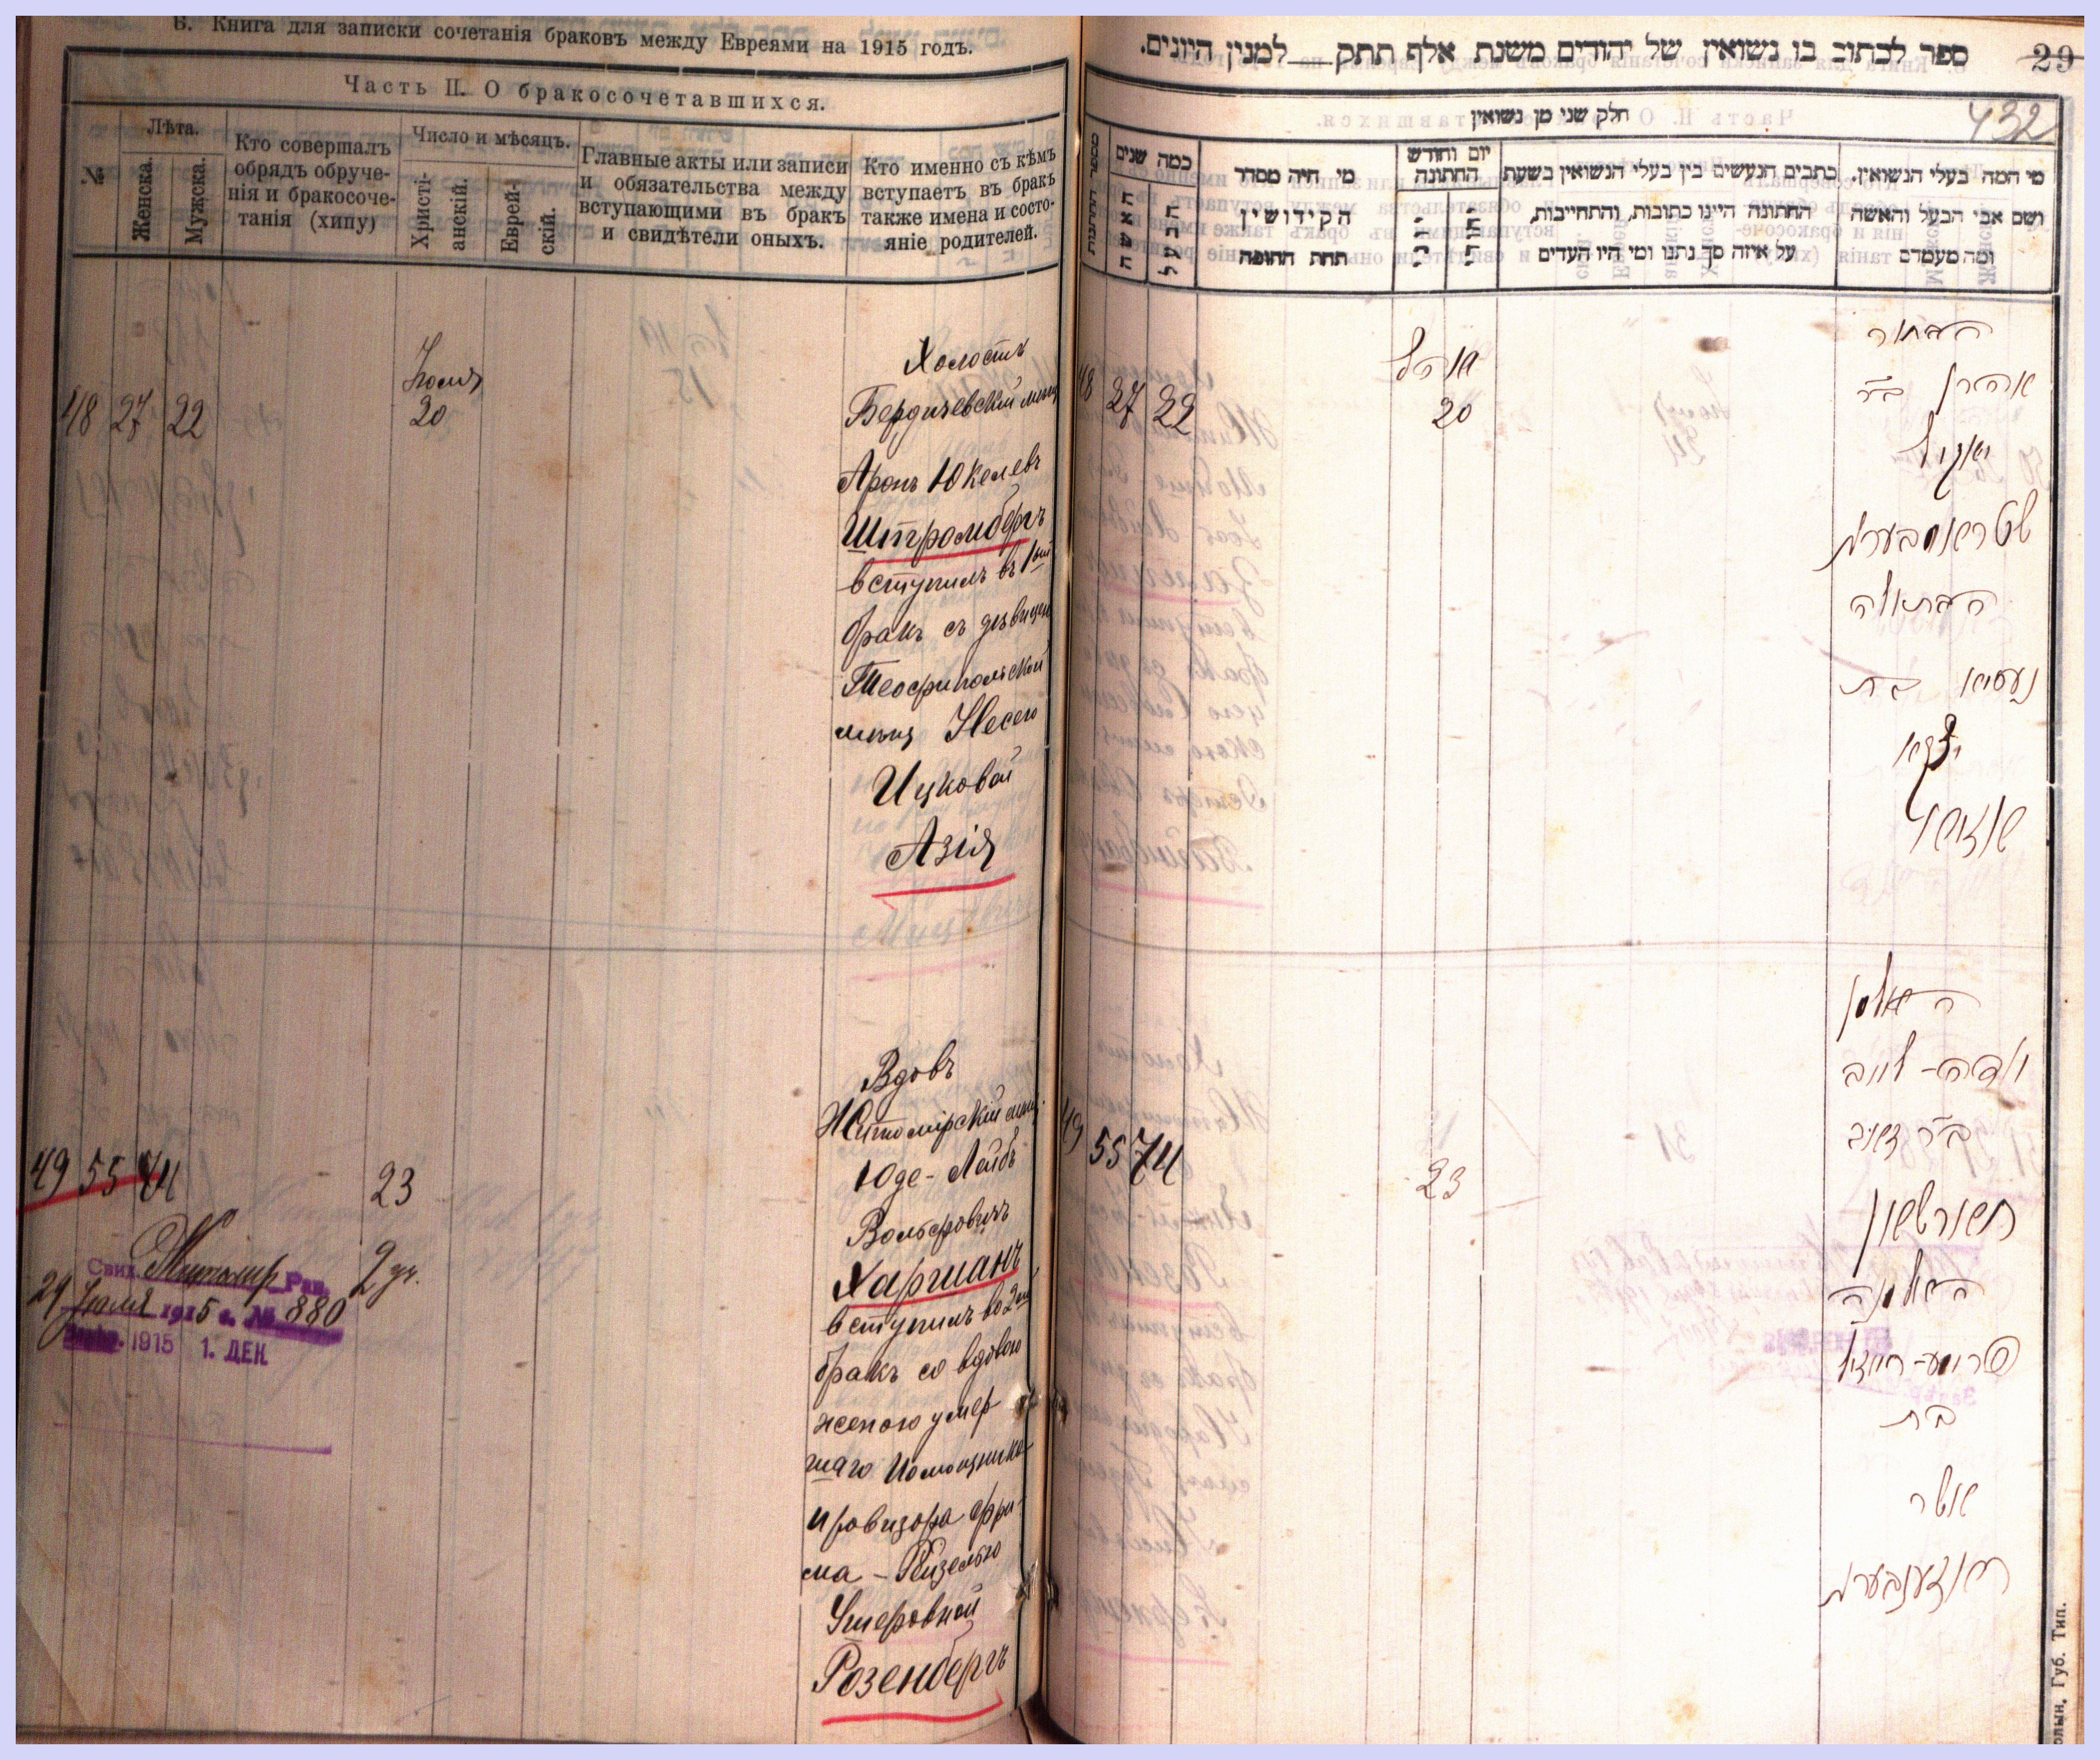 Б. Книга для записки сочетанія браковъ между Евреями на 1915 годъ.
Часть II. О бракосочетавшихся.
№
Лѣта.
Женска.
Мужска.
Кто совершалъ
обрядъ обруче-
нія и бракосоче-
танія (хипу)
Число и мѣсяцъ.
Христі-
анскій.
Еврей-
скій.
Главные акты или записи
и обязательства между
вступающими въ бракъ
и свидѣтели оныхъ.
Кто именно съ кѣмъ
вступаетъ въ бракъ
также имена и состо-
яніе родителей.
48 27 22
Іюля
20
Холостъ
Бердичевскій мѣщ
Аронъ Юкелевъ
Штромбергъ
вступилъ въ 1ый
бракъ съ дѣвицею
Теофипольской
мѣщ Несею
Ицковой
Азія
49 55 74
23
2 ру.
Свид. Житомир Рав.
29 Іюля 1915 г. № 880
1915 1. ДЕК
Вдовъ
Житомірскій мѣщ.
Юде-Лейбъ
Вольфовичъ
Харшанъ
вступилъ во 2ой
бракъ со вдовою
женою умер
шаго
провизора Фру
ма-Рейзелью
Ушеровной
Розенбергъ
ספר לכתוב בו נשואין של יהודים משנת אלף תתק___למנין היונים.
29
432
חלק שני מן נשואין
מספר החתונות
כמה שנים
האשה
הבעל
מי היה מסדר
הקידושין
תחת החופה
יום וחודש
החתונה
כתבים הנעשים בין בעלי הנשואין בשעת
החתונה היינו כתובות, והתחייבות,
על איזה סך נתנו ומי היו העדים
מי המה בעלי הנשואין.
ושם אבי הבעל והאשה
ומה מעמדם
48 27 22
יולי
20
הבחור
אהרן ב״ר
יאקיל
שטראמבערג
הבתולה
נעסיא בת
יצקא
אזיא
49 55 74
23
האלמן
יודה-לייב
ב״ר זאב
חארשאן
האלמנה
פרומע-רייזל
בת
אשר
ראזענבערג
Губ. Тип.